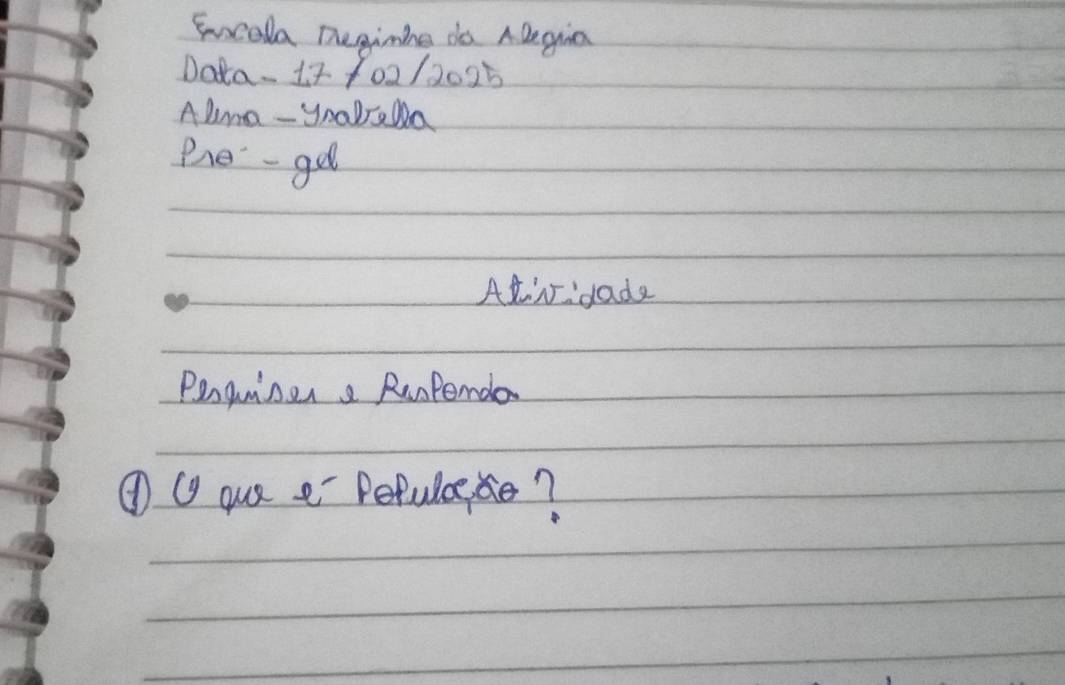 Escola Reginha da Alegria
Data - 17 / 02 / 2025
Aluna - Ysabella
Pro - gel
Atividade
Pesquiser e Responda
① O que é População?